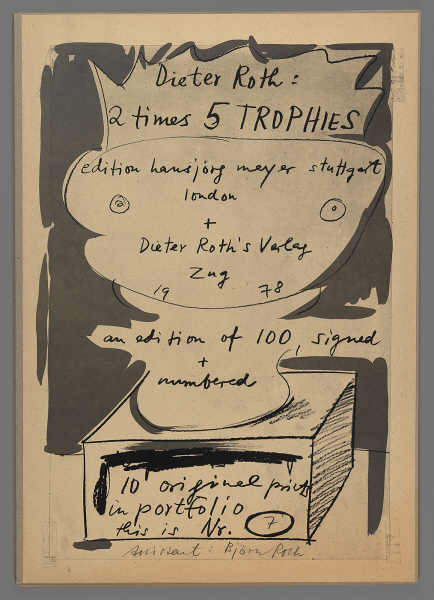 Dieter Roth:
2 times 5 TROPHIES
edition hansjörg meyer stuttgart
london
+
Dieter Roth's Verlag
Zug
19 78
an edition of 100, signed
+
numbered
10 original prints
in portfolio
this is Nr. 7
Assistent: Björn Roth.